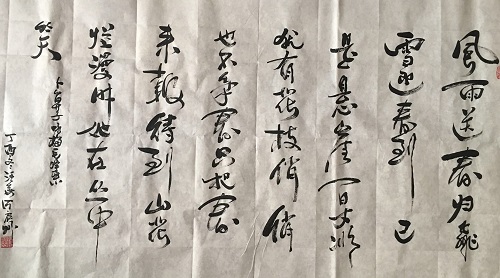 風雨送春归飛
雪迎春到已
是悬崖百丈冰
犹有花枝俏俏
也不争春只把春
来報待到山花
烂漫时她在丛中
笑
卜算子咏梅毛泽东
丁酉冬